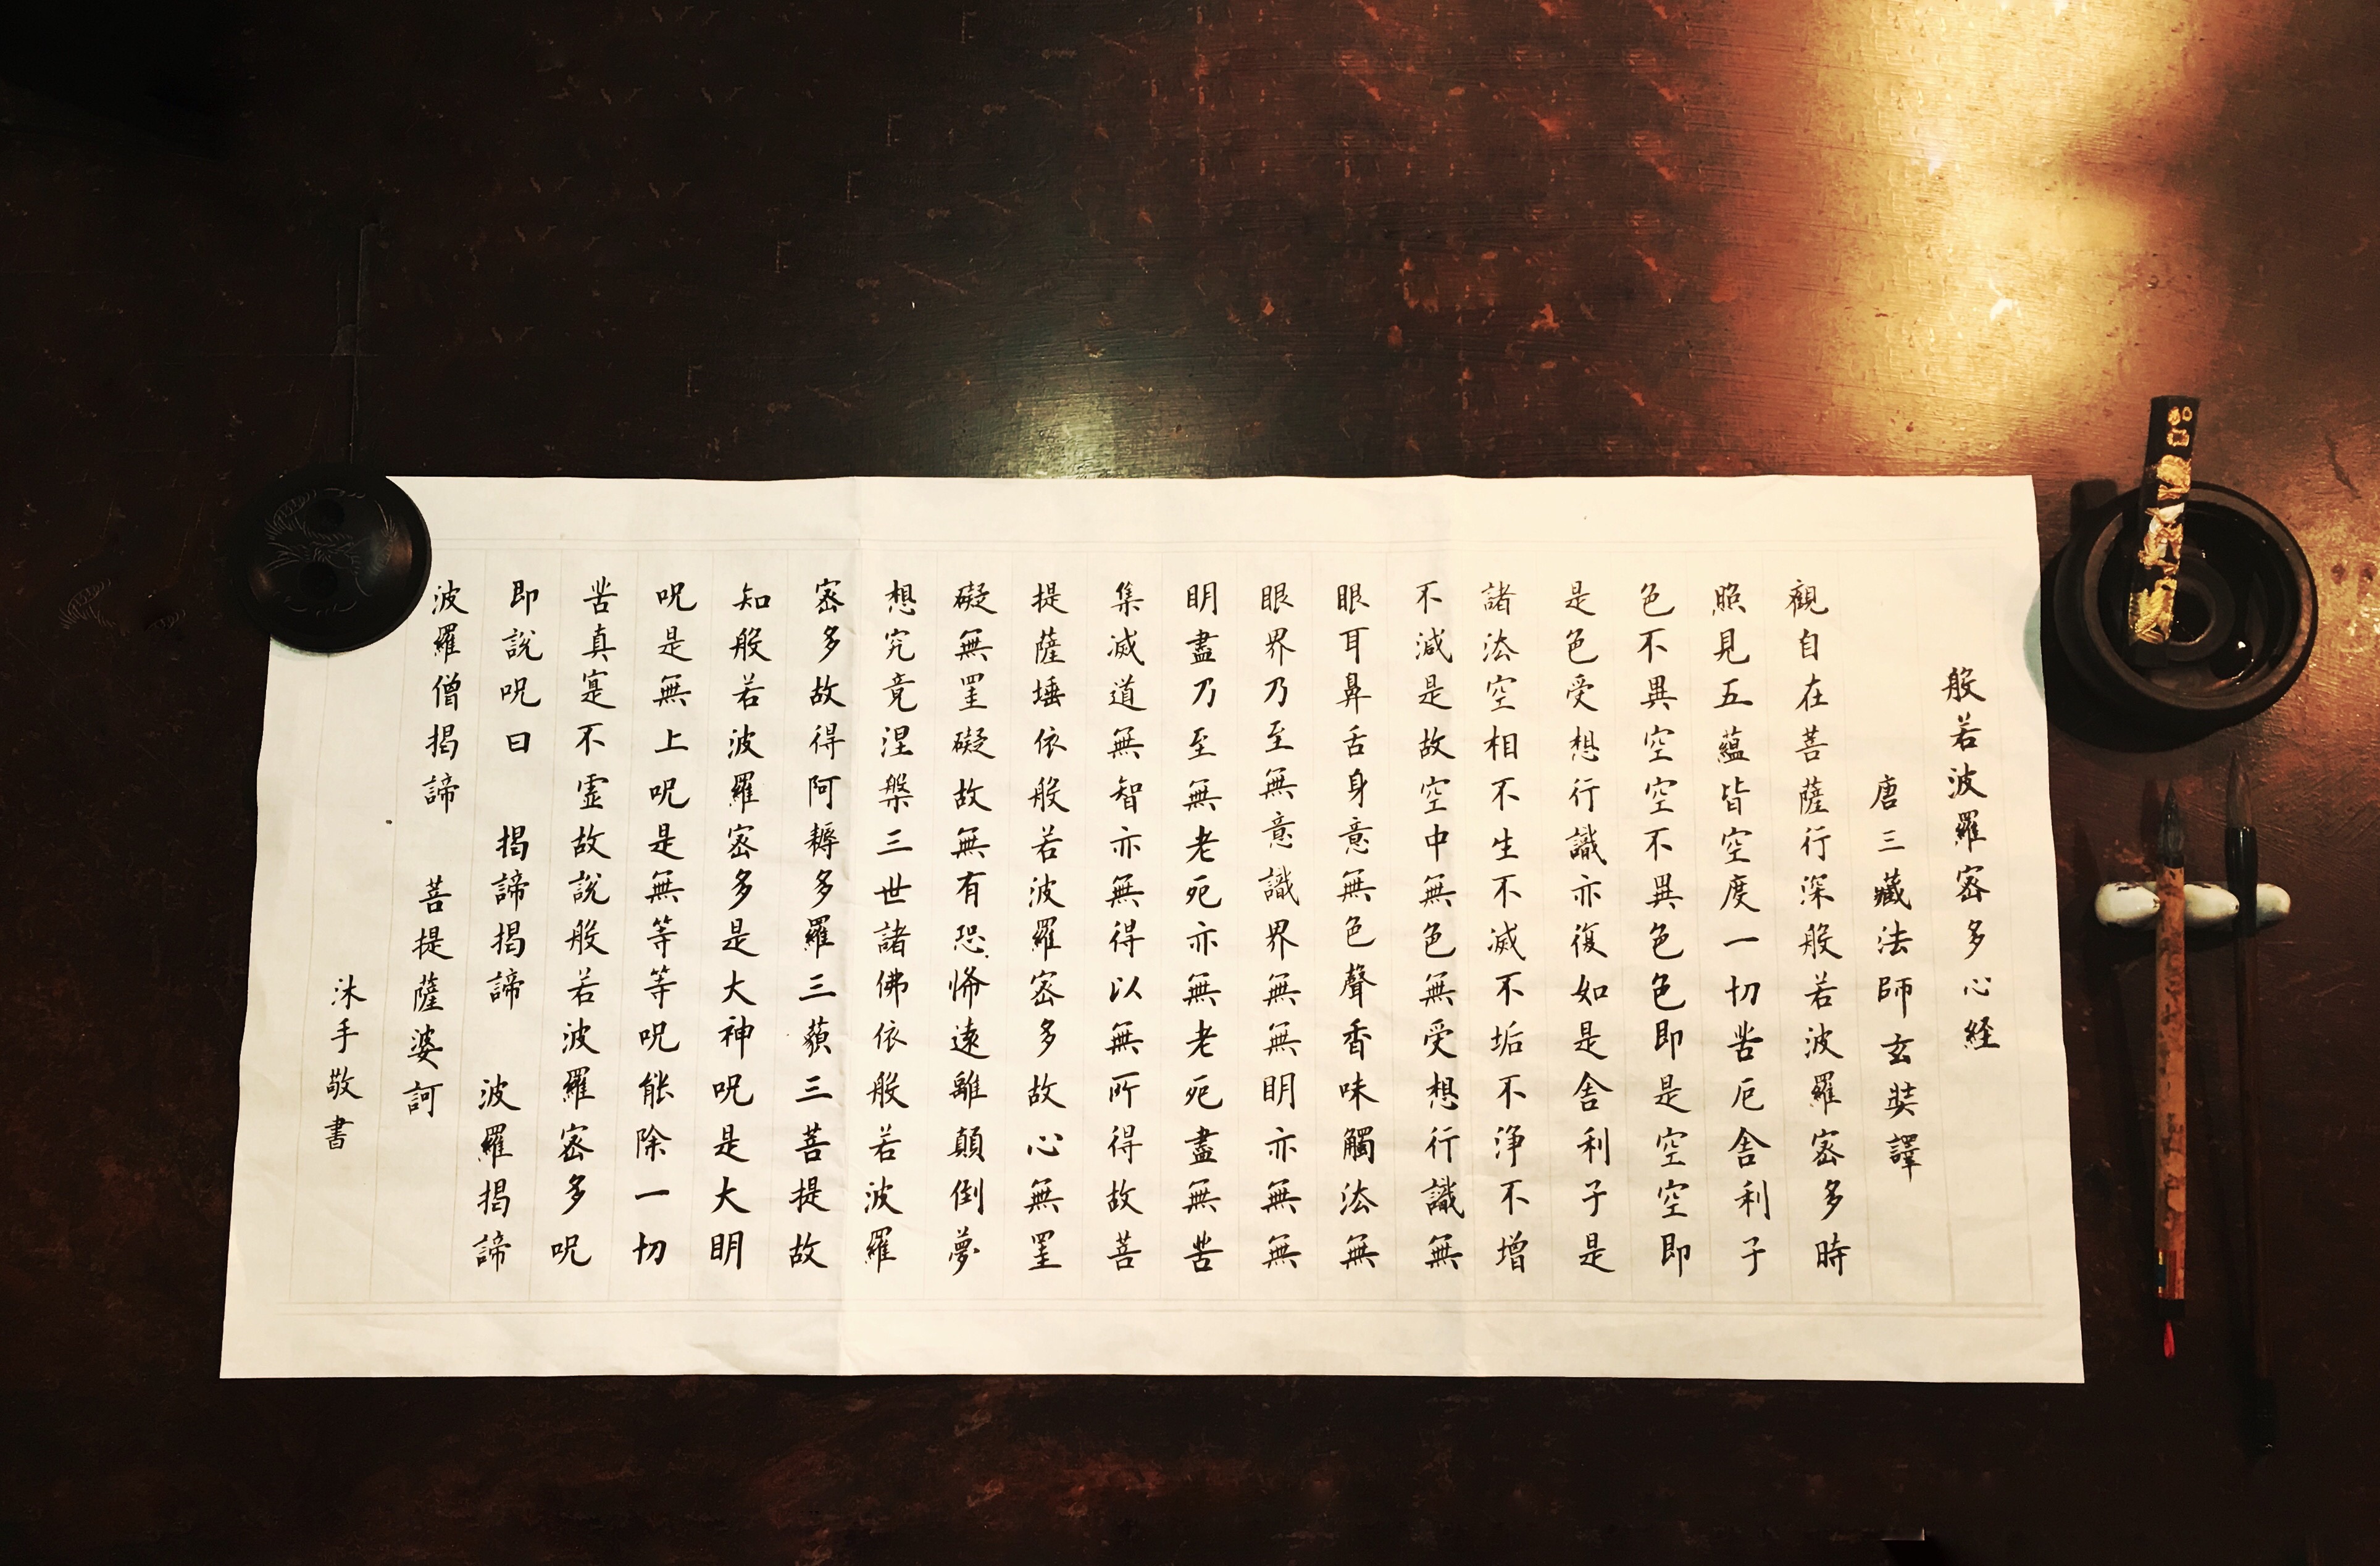 般若波羅密多心経
唐三藏法師玄奘譯
觀自在菩薩行深般若波羅密多時
照見五蘊皆空度一切苦厄舍利子
色不異空空不異色色即是空空即
是色受想行識亦復如是舍利子是
諸法空相不生不滅不垢不淨不增
不減是故空中無色無受想行識無
眼耳鼻舌身意無色聲香味觸法無
眼界乃至無意識界無無明亦無無
明盡乃至無老死亦無老死盡無苦
集滅道無智亦無得以無所得故菩
提薩埵依般若波羅密多故心無罣
礙無罣礙故無有恐怖遠離顛倒夢
想究竟涅槃三世諸佛依般若波羅
密多故得阿耨多羅三藐三菩提故
知般若波羅密多是大神呪是大明
呪是無上呪是無等等呪能除一切
苦真寔不虛故說般若波羅密多呪
即說呪曰 揭諦揭諦 波羅揭諦
波羅僧揭諦 菩提薩婆訶
沐手敬書